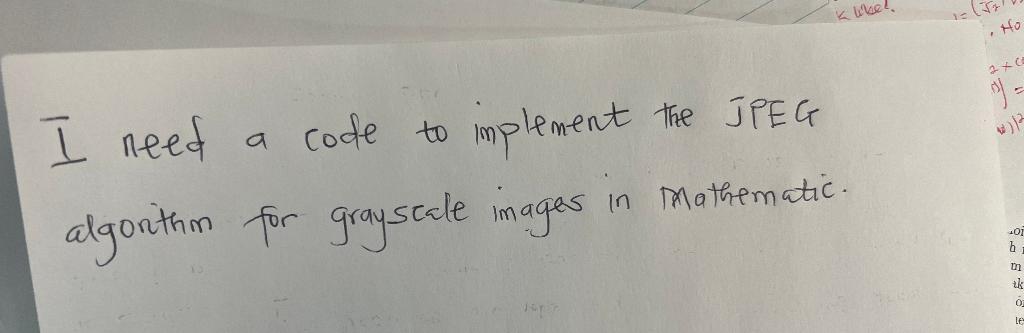 I need a code to implement the JPEG
algorithm for grayscale images in Mathematic.
K like!